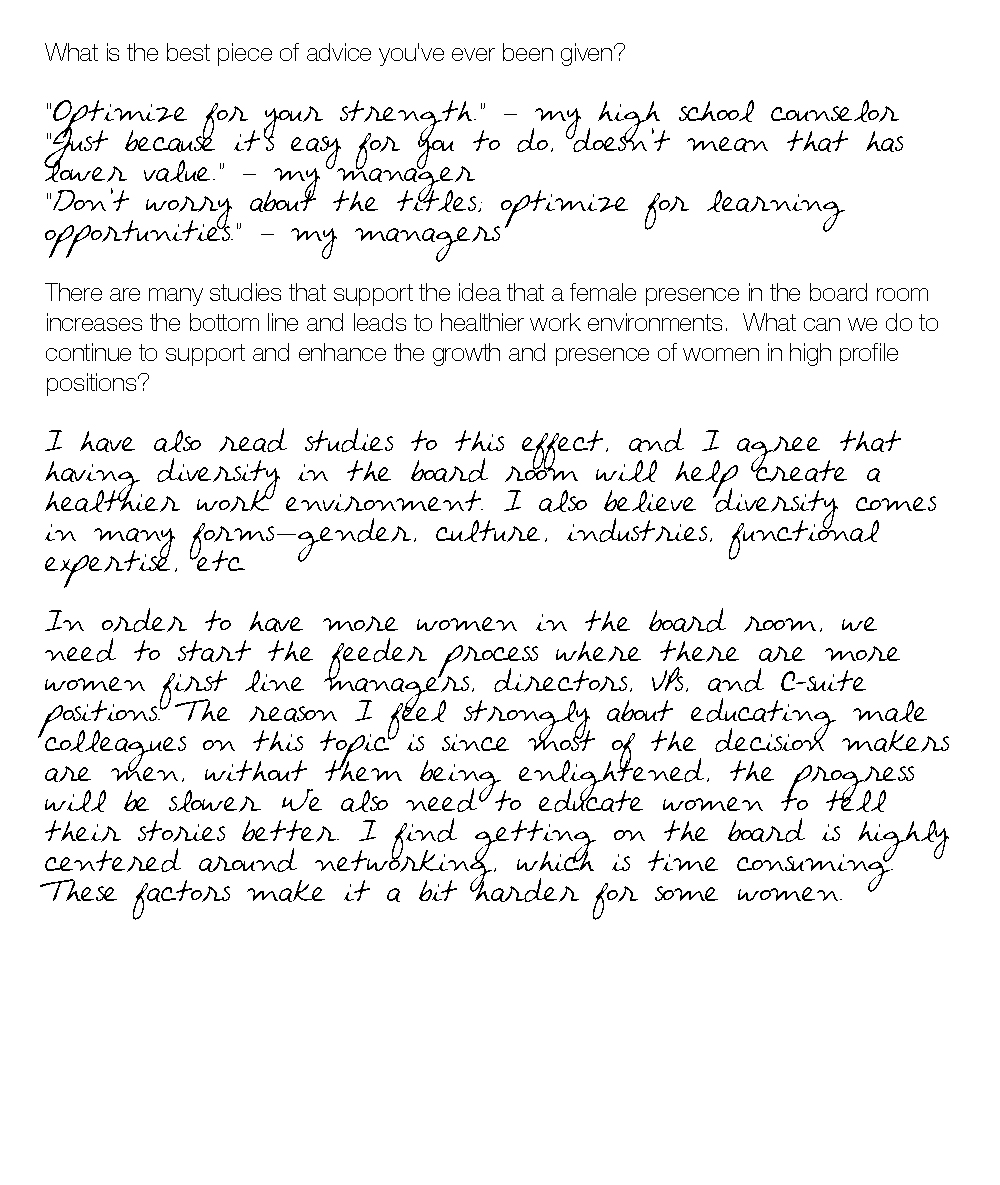 What is the best piece of advice you've ever been given?
"Optimize for your strength." – my high school counselor
"Just because it's easy for you to do, doesn't mean that has
lower value." – my manager
"Don't worry about the titles; optimize for learning
opportunities." – my managers
There are many studies that support the idea that a female presence in the board room
increases the bottom line and leads to healthier work environments.  What can we do to
continue to support and enhance the growth and presence of women in high profile
positions?
I have also read studies to this effect, and I agree that
having diversity in the board room will help create a
healthier work environment. I also believe diversity comes
in many forms—gender, culture, industries, functional
expertise, etc.
In order to have more women in the board room, we
need to start the feeder process where there are more
women first line managers, directors, VPs, and C-suite
positions. The reason I feel strongly about educating male
colleagues on this topic is since most of the decision makers
are men, without them being enlightened, the progress
will be slower. We also need to educate women to tell
their stories better. I find getting on the board is highly
centered around networking, which is time consuming.
These factors make it a bit harder for some women.